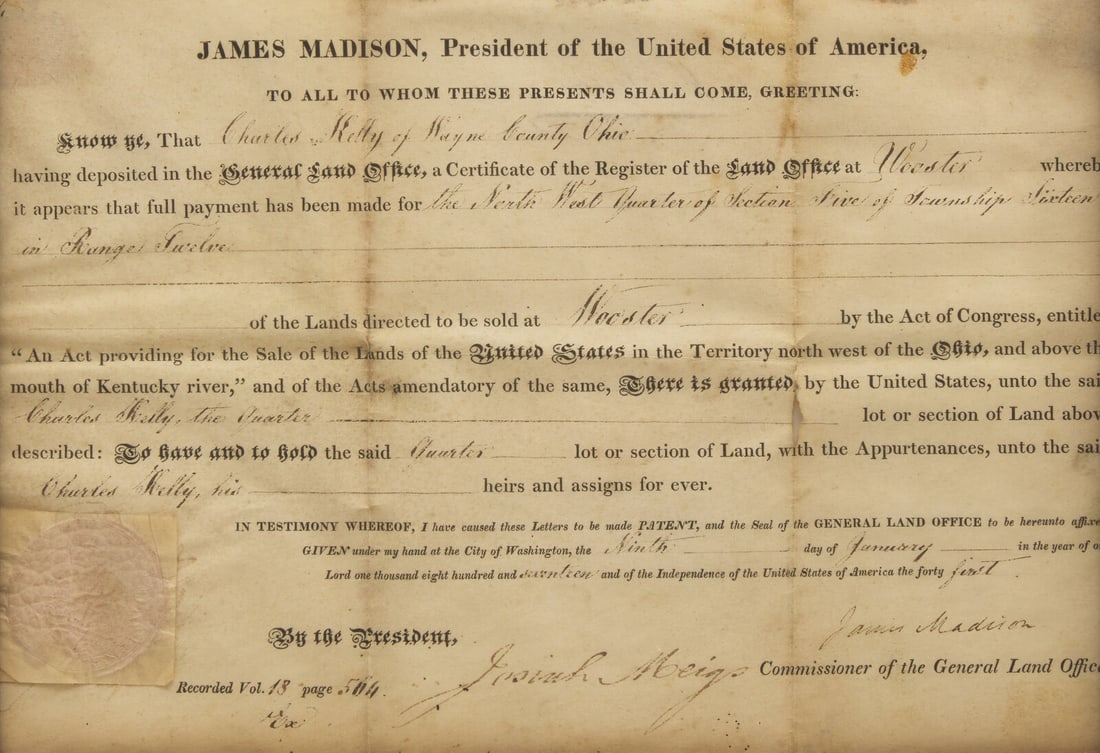 JAMES MADISON, President of the United States of America,
TO ALL TO WHOM THESE PRESENTS SHALL COME, GREETING:
Know ye, That Charles Kelly of Wayne County Ohio
having deposited in the General Land Office, a Certificate of the Register of the Land Office at Wooster whereb
it appears that full payment has been made for the North West Quarter of Section Five of Township Sixteen
in Range Twelve
of the Lands directed to be sold at Wooster by the Act of Congress, entitle
"An Act providing for the Sale of the Lands of the United States in the Territory north west of the Ohio, and above th
mouth of Kentucky river," and of the Acts amendatory of the same, There is granted, by the United States, unto the sai
Charles Kelly, the quarter lot or section of Land abov
described: To have and to hold the said quarter lot or section of Land, with the Appurtenances, unto the sai
Charles Kelly, his heirs and assigns for ever.
IN TESTIMONY WHEREOF, I have caused these Letters to be made PATENT, and the Seal of the GENERAL LAND OFFICE to be hereunto affixe
GIVEN under my hand at the City of Washington, the Ninth day of January in the year of o
Lord one thousand eight hundred and seventeen and of the Independence of the United States of America the forty first.
By the President,
James Madison
Josiah Meigs Commissioner of the General Land Offic
Recorded Vol. 18 page 564.